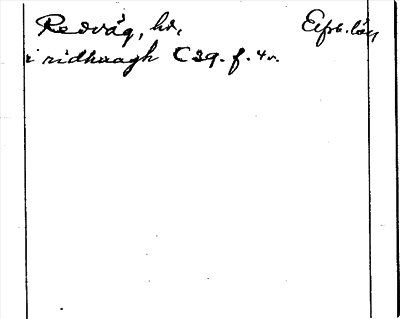 Redväg, hd, Elfsb. län
i ridhwagh C 29. f. 4 v.